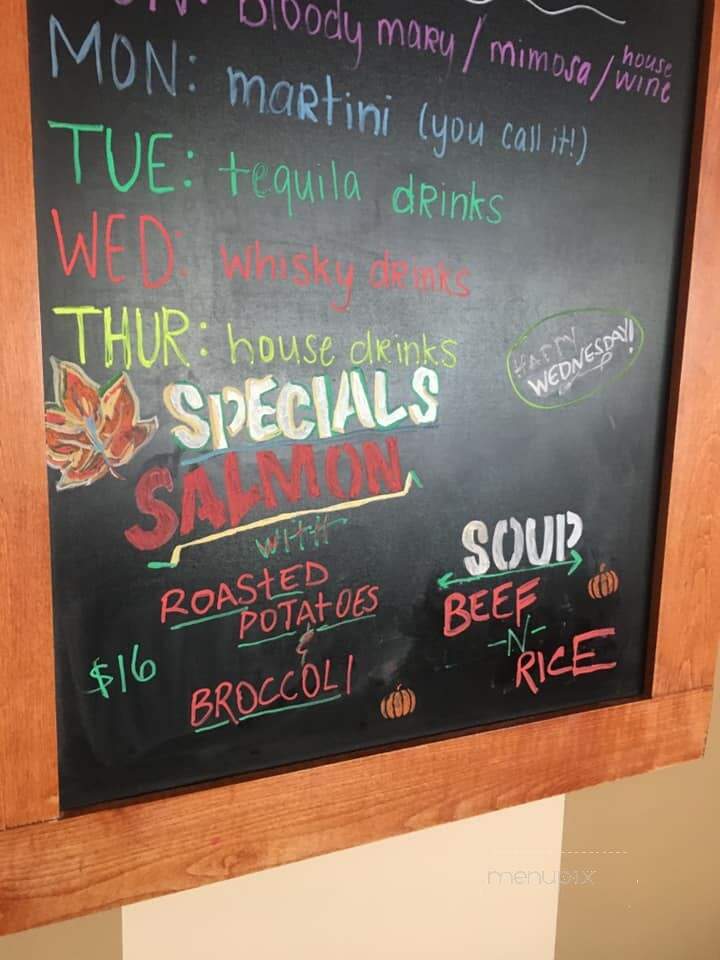 bloody mary / mimosa / house wine
MON: martini (you call it!)
TUE: tequila drinks
WED: whisky drinks
THUR: house drinks
HAPPY
WEDNESDAY!
SPECIALS
SALMON
WITH
ROASTED
POTATOES
&
BROCCOLI
$16
SOUP
BEEF
-N-
RICE
menupix